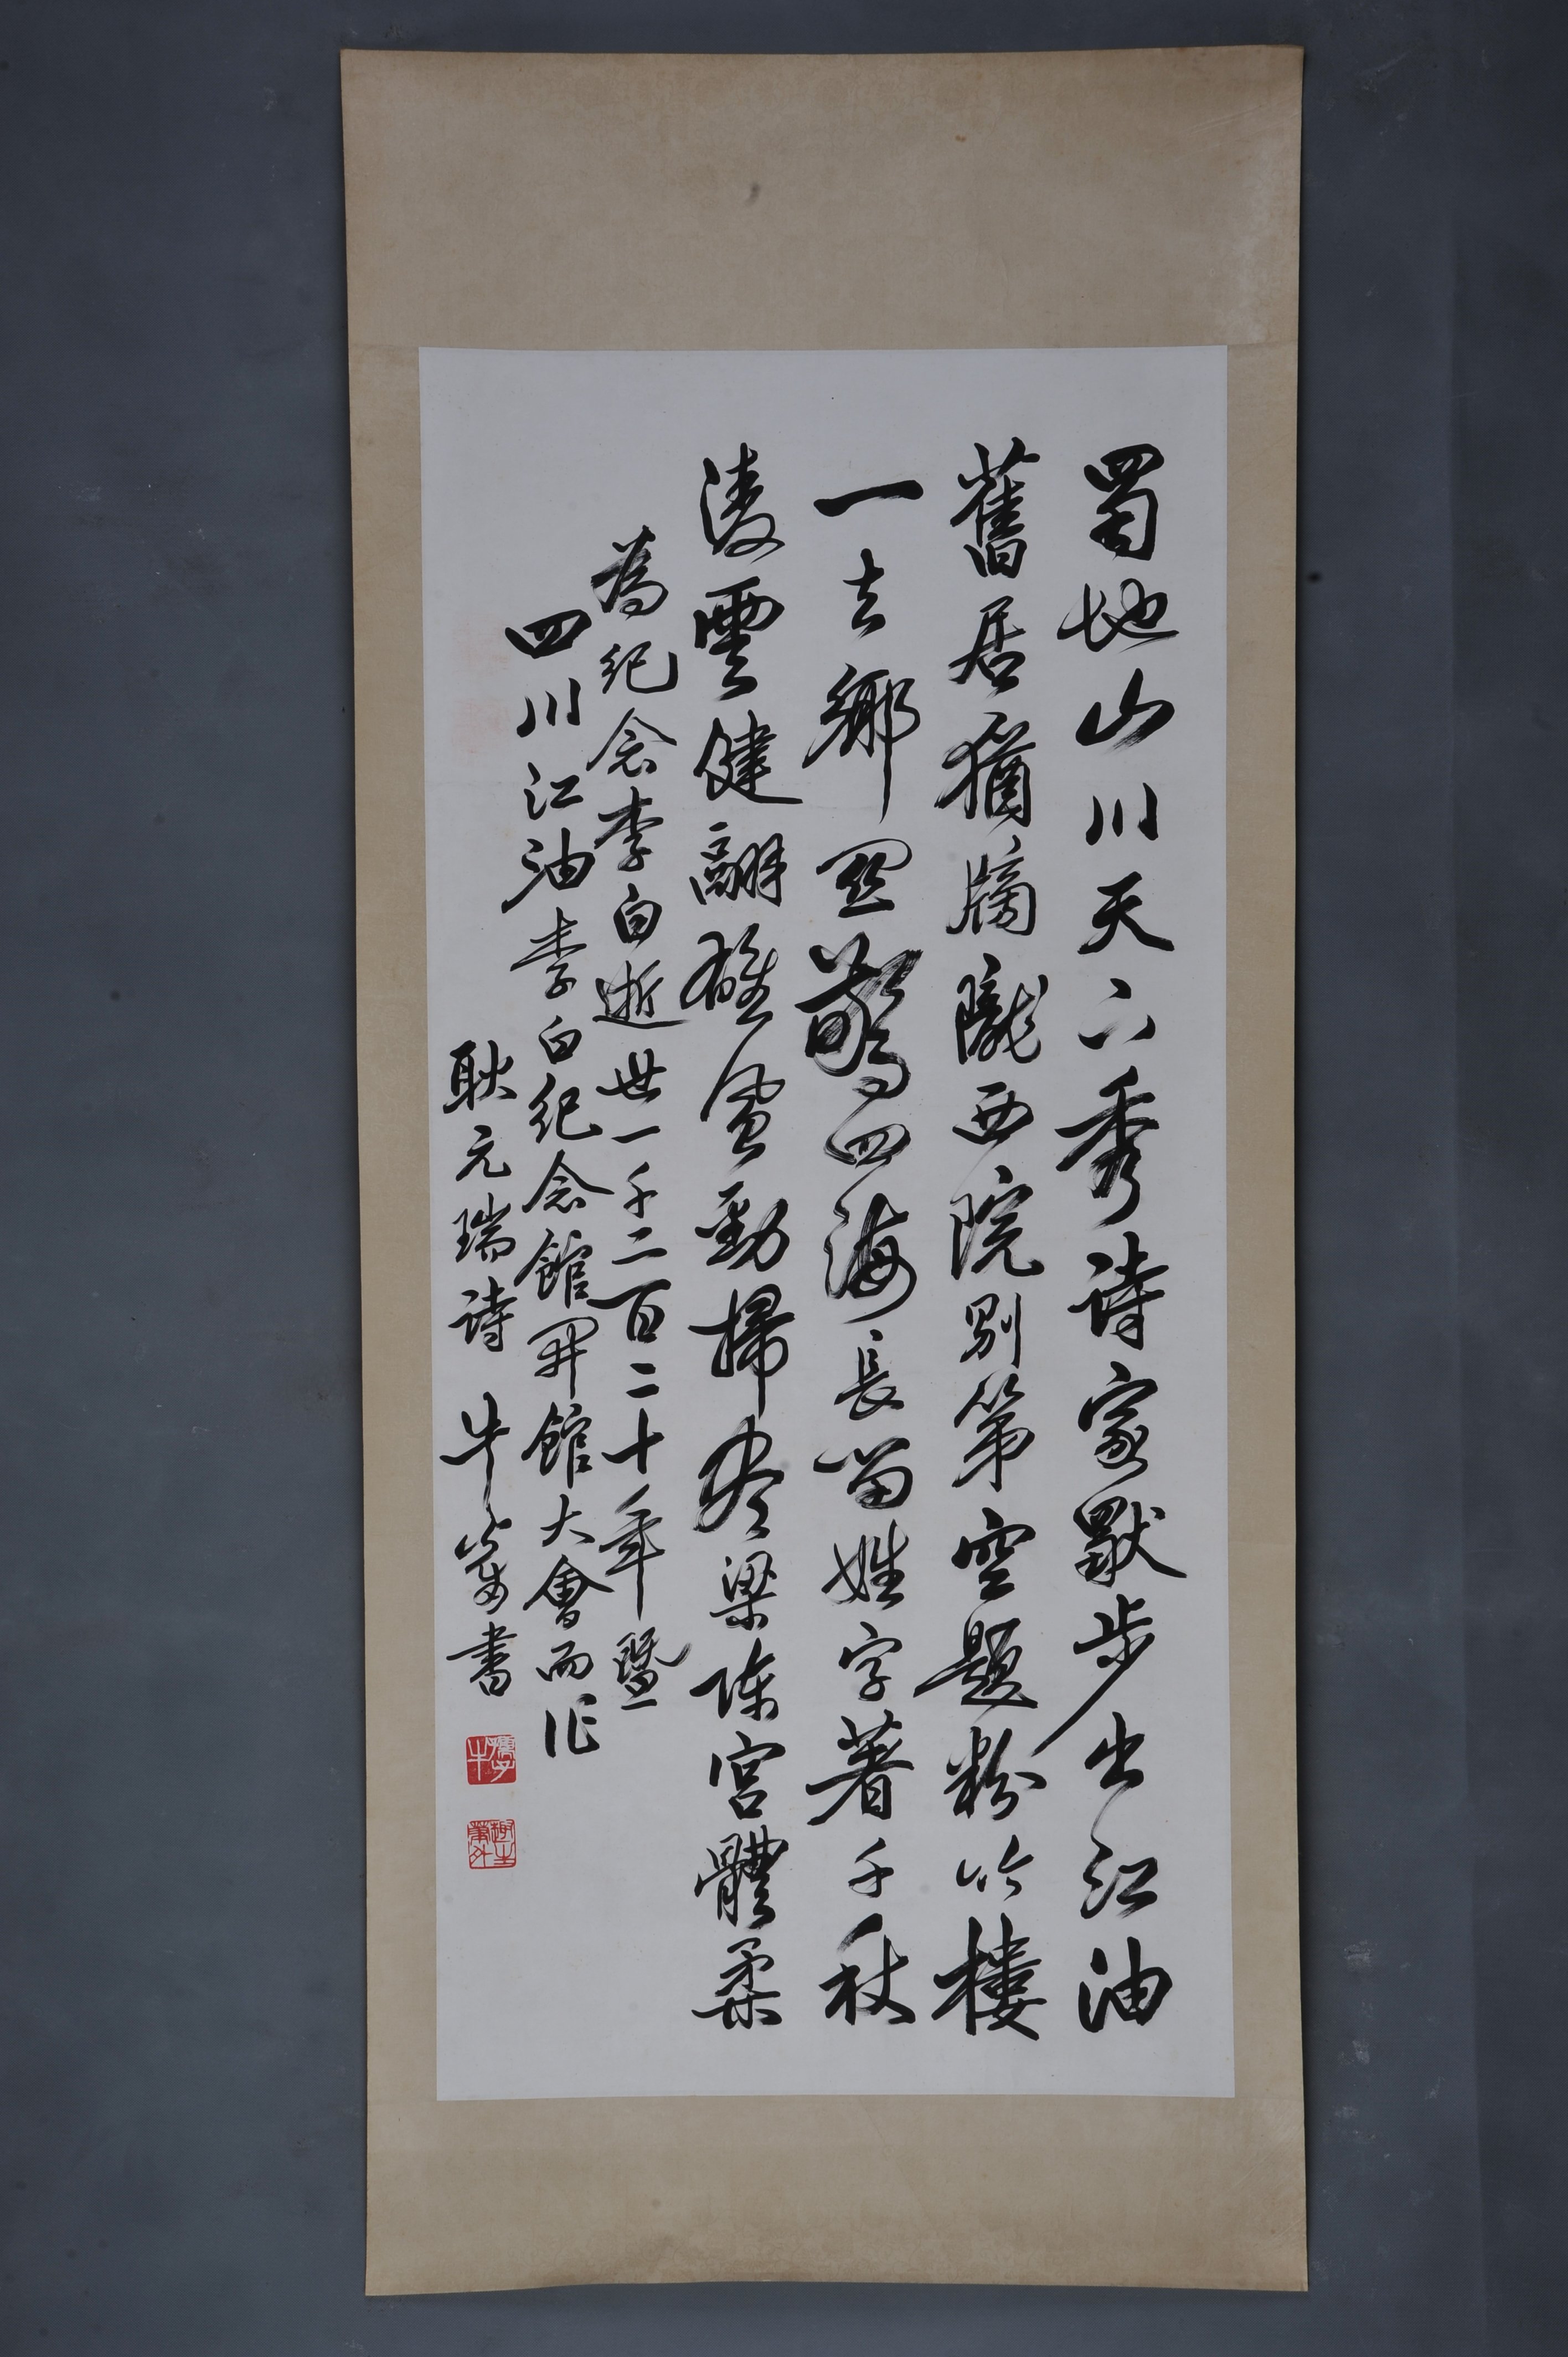 蜀地山川天下秀詩家默步出江油
舊居猶牓隴西院別第空題粉竹樓
一去鄉關驚四海長留姓字著千秋
凌雲健翮雄風勁掃盡梁陳宮體柔
為紀念李白逝世一千二百二十年暨
四川江油李白紀念館開館大會而作
耿元瑞詩 牛 書